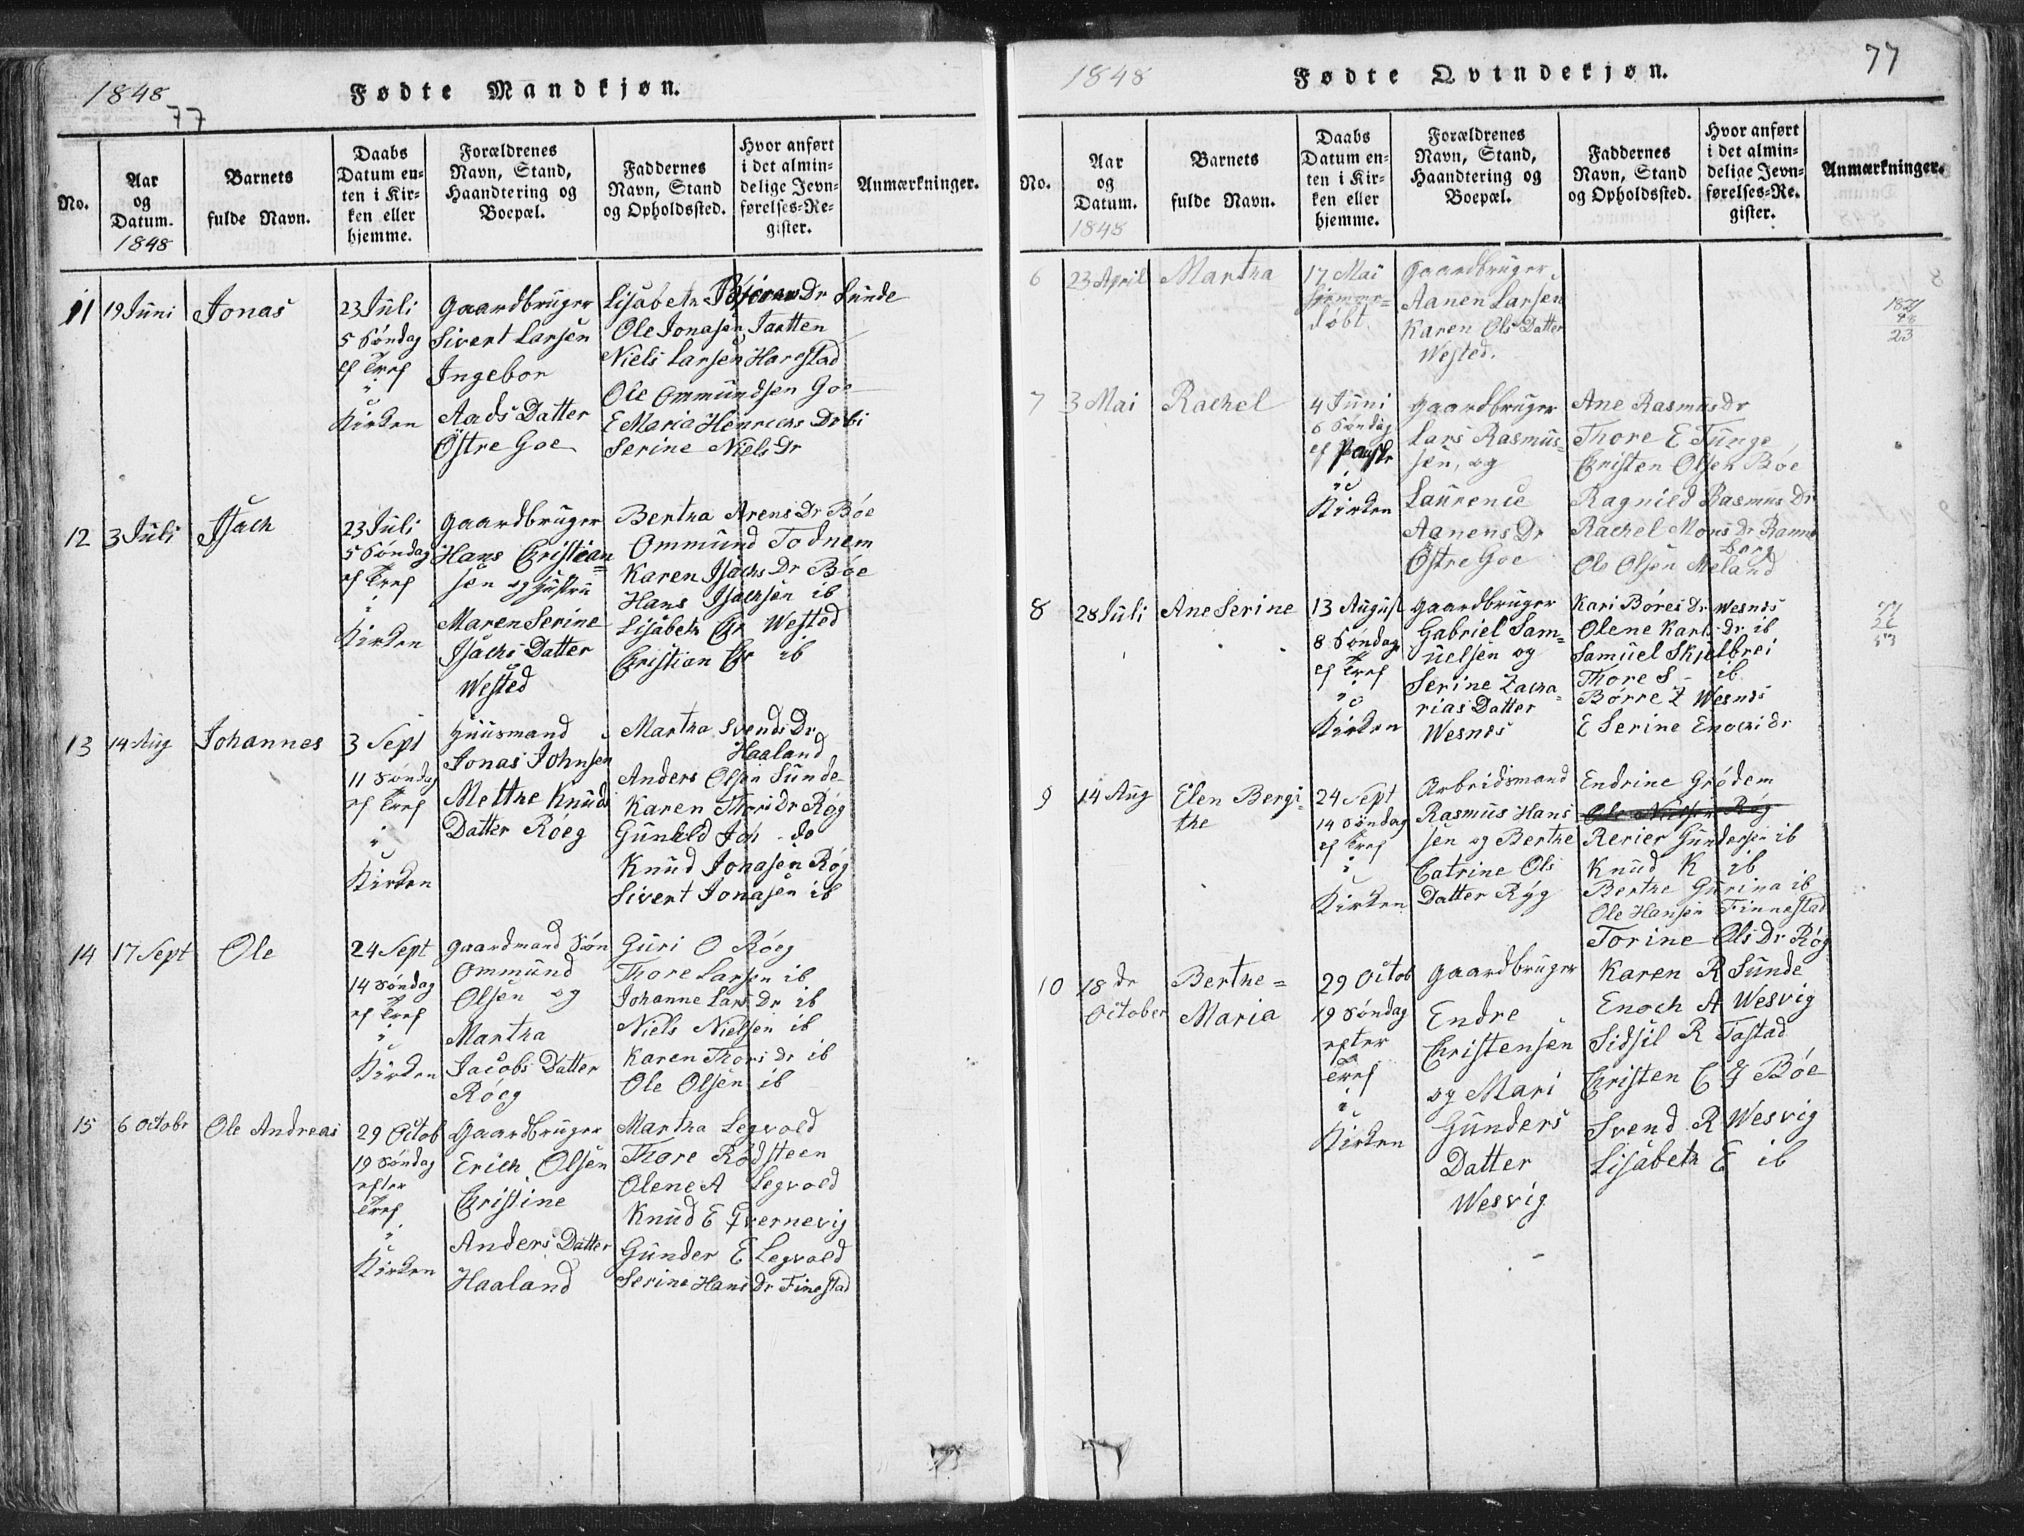 1848
77
Fødte Mandkjøn.
No.
Aar
og
Datum.
1848
Barnets
fulde Navn.
Daabs
Datum en-
ten i Kir-
ken eller
hjemme.
Forældrenes
Navn, Stand,
Haandtering og
Boepæl.
Faddernes
Navn, Stand
og Opholdssted.
Hvor anført
i det almin-
delige Jevn-
førelses-Re-
gister.
Anmærkninger.
11
19 Juni
Jonas
23 Juli
5 Søndag
ef Tref
i
Kirken
Gaardbruger
Sivert Larsen
Ingebor
Aads Datter
Östre Goe
Lisabeth Dr Sunde
Ole Jonasen Tastten
Niels Larsen Harestad
Ole Ommundsen Goe
E Maria Henrichs Dr ibi
Serine Niels Dr
12
3 Juli
Isach
23 Juli
5 Søndag
ef Tref
i
Kirken
Gaardbruger
Hans Christian=
sen og Hustru
Maren Serine
Isachs Datter
Wested
Bertha Arens Dr Bóe
Ommund Todnem
Karen Isachs Dr Bóe
Hans Isachsen ib
Lisabeth Chr Wested
Christian Chr ib
13
14 Aug
Johannes
3 Sept
11 Søndag
ef Tref
i
Kirken
Huusmand
Jonas Johnsen
Mette Knuds
Datter Róeg
Martha Svends Dr
Haaland
Anders Olsen Sunde
Karen Thors Dr Róg
Gunild Joh - do
Knud Jonasen Róg
Sivert Jonasen ib
14
17 Sept
Ole
24 Sept
14 Søndag
ef Tref
i
Kirken
Gaardmand Søn
Ommund
Olsen og
Martha
Jacobs Datter
Róeg
Guri O Róeg
Thore Larsen ib
Johanne Lars Dr ib
Niels Nielsen ib
Karen Thors dr ib
Ole Olsen ib
15
6 Octobr
Ole Andreas
29 Octob
19 Søndag
efter
Tref
i
Kirken
Gaardbruger
Erich Olsen
Christine
Anders Datter
Haaland
Martha Legvold
Thore Rødsteen
Olene A Legvold
Knud E Qvernevig
Gunder E Legvold
Serine Hans Dr Finestad
1848
Fødte Qvindekjøn.
77
No.
Aar
og
Datum.
1848
Barnets
fulde Navn.
Daabs
Datum en-
ten i Kir-
ken eller
hjemme.
Forældrenes
Navn, Stand,
Haandtering og
Boepæl.
Faddernes
Navn, Stand
og Opholdssted.
Hvor anført
i det almin-
delige Jevn-
førelses-Re-
gister.
Anmærkninger.
6
23 April
Martha
17 Mai
hjemme=
døbt
Gaardbruger
Aanen Larsen
Karen Ols Datter
Wested.
1871
48
23
7
3 Mai
Rachel
4 Juni
6 Søndag
ef Paaske
i
Kirken
Gaardbruger
Lars Rasmus=
sen, og
Laurence
Aanens Dr
Östre Goe
Ane Rasmus Dr
Thore E Tunge
Christen Olsen Bóe
Ragnild Rasmus Dr
Rachel Mons Dr Ramns
barg
Ole Olsen Meland
8
28 Juli
Ane Serine
13 August
8 Søndag
ef Tref
i
Kirken
Gaardbruger
Gabriel Sam=
uelsen og
Serine Zacha=
rias Datter
Wesnes
Kari Bóres Dr Wesnes
Olene Karls dr ib
Samuel Skjelbrei
Thore S - ib
Bórre Z Wesnes
E Serine Enochs dr
9
14 Aug
Elen Bergi=
the
24 Sept
14 Søndag
ef Tref
i
Kirken
Arbeidsmand
Rasmus Hans
sen og Berthe
Catrine Ols
Datter Ryg
Endrine Gródem
Ole Nielsen Róg
Rerier Gundersen ib
Knud K ib
Berthe Gurina ib
Ole Hansen Finnestad
Torine Ols Dr Róg
10
18 de
October
Berthe=
Maria
29 Octob
19 Søndag
efter
Tref
i
Kirken
Gaardbruger
Endre
Christensen
og Mari
Gunders
Datter
Wesvig
Karen R Sunde
Enoch A Wesvig
Sidsil R Tastad
Christen C J Bóe
Svend R Wesvig
Lisabeth E ib